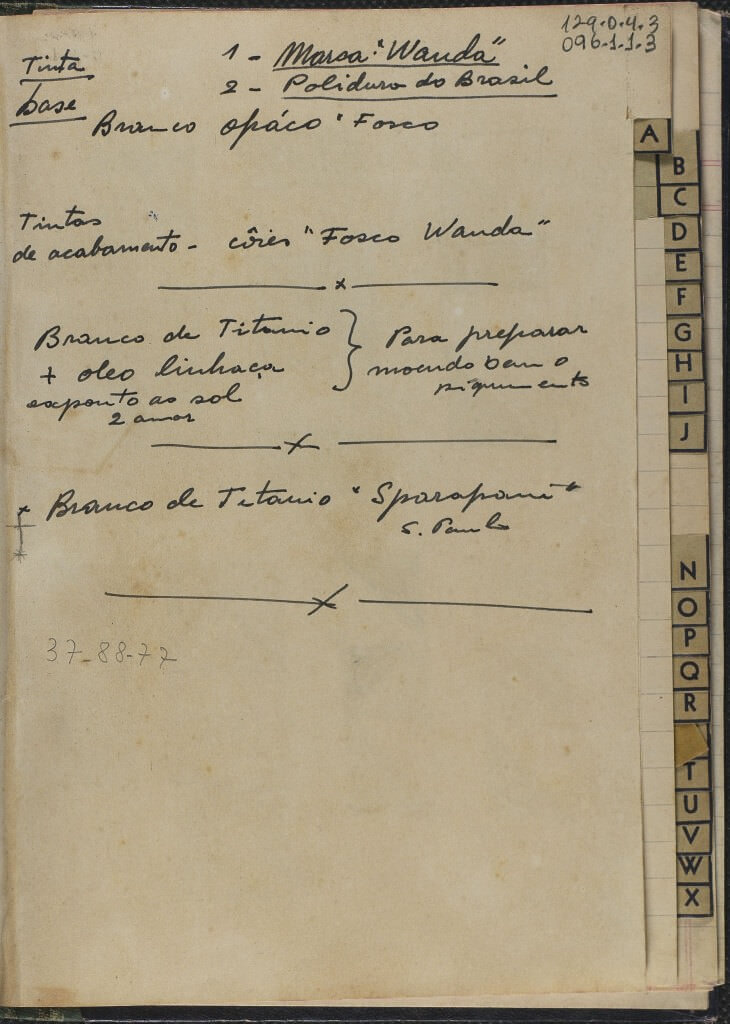 129.0.4.3
096.1.1.3
Tinta base
1 - Marca "Wanda"
2 - Polidura do Brasil
Branco opáco "Fosco
Tintas
de acabamento - côres "Fosco Wanda"
x
Branco de Titanio } Para preparar
+ oleo linhaça moendo bem o
exposto ao sol pigmento
2 anos
x
x Branco de Titanio "Sparapani"
S. Paulo
x
37-88-77
A
B
C
D
E
F
G
H
I
J
N
O
P
Q
R
T
U
V
W
X